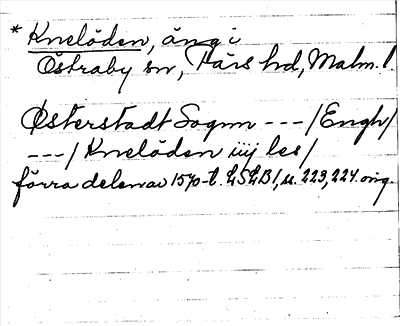 * Knelöden, äng i
Östraby sn, Färs hd, Malm. l.
Østerstadt Sognn --- /Engh/
---/ Knelöden iiij les/
förra delen av 1570-t. LSLB 1, s. 223, 224. orig.